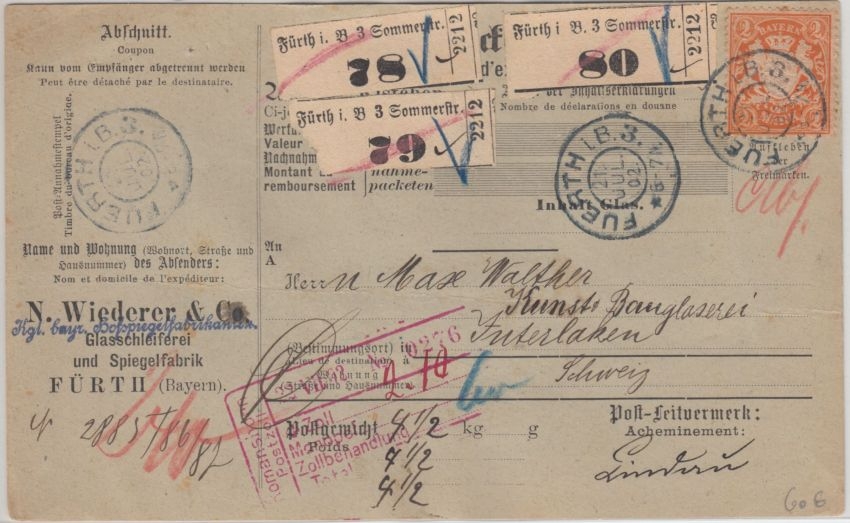 Abschnitt.
Coupon
Kann vom Empfänger abgetrennt werden
Peut être détaché par le destinataire.
Post-Annahmestempel
Timbre du bureau d'origine.
FUERTH I.B. 3.
Name und Wohnung (Wohnort, Straße und
Hausnummer) des Absenders:
Nom et domicile de l'expéditeur:
N. Wiederer & Co.
Kgl. bayr. Hofspiegelfabrikanten.
Glasschleiferei
und Spiegelfabrik
FÜRTH (Bayern).
2885/86/87
Fürth i. B. 3 Sommerstr.
78
2212
Fürth i. B. 3 Sommerstr.
80
2212
Fürth i. B. 3 Sommerstr.
79
2212
der Inhaltserklärungen
Nombre de déclarations en douane
Ci-j
Valeur
Nachnahm
Montant du
remboursement
nahme-
packeten
2 BAYERN 2
FUERTH I.B. 3.
Aufkleben
der
Freimarken.
FUERTH I.B. 3.
21
JUL
02
6-7
Inhalt Glas.
An
A
Herrn Max Walther
Kunst & Bauglaserei
(Bestimmungsort) in Interlaken
(Lieu de destination) à
Wohnung
(Straße und Hausnummer)
Schweiz
0276
Romansh
Postzoll
Zoll
Zollbehandlung
Total
Postgewicht 4 1/2 kg g
Poids
4 1/2
4 1/2
Post-Leitvermerk:
Acheminement:
Lindau